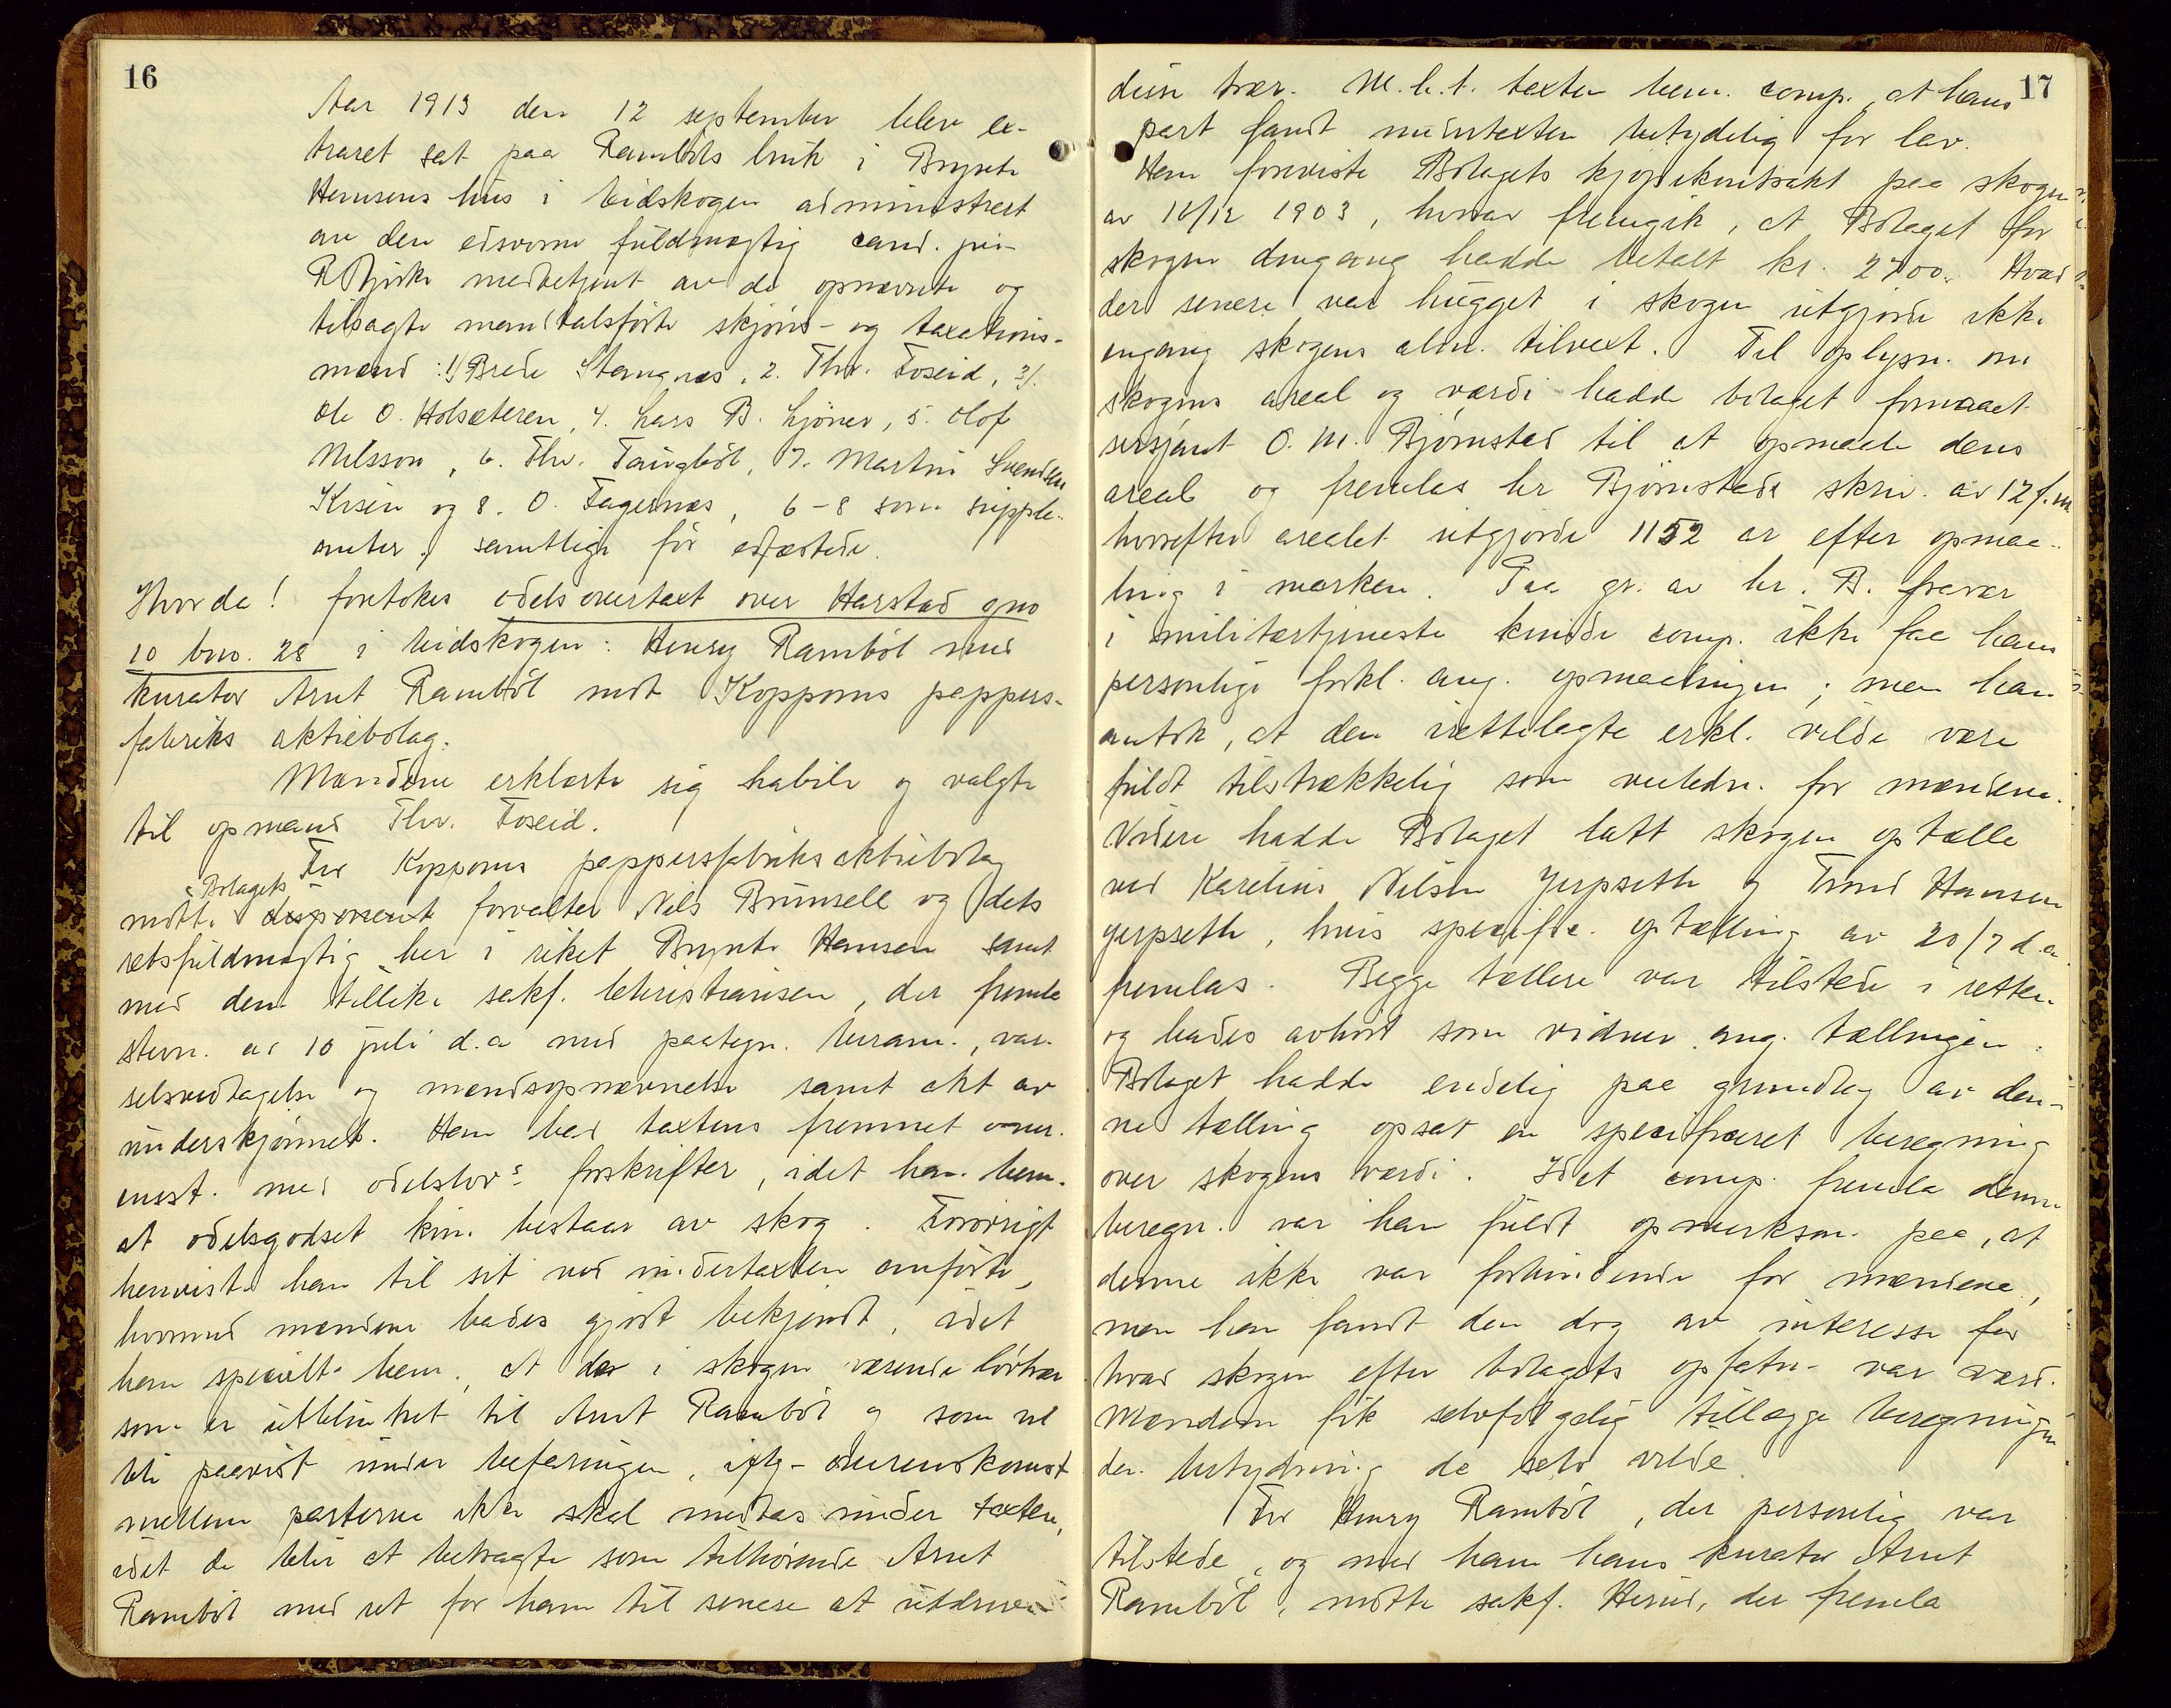 16
Aar 1913 den 12 september blev ex-
traret sat paa Rambøls bruk i Brynte
Hansens hus i Eidskogen administrert
av den edsvorne fuldmægtig cand. jur.
R Bjirke medbetjent av de opnævnte og
tilsagte mandtalsførte skjøns- og taxations-
mænd: 1) Brede Stangnæs, 2. Thv. Foseid, 3/.
Ole O. Holsæteren, 4. Lars B. Ljøner, 5. Olof
Nilsson, 6. Thv. Taugbøl, 7. Martin Svendsen
Krisen og 8. O. Fagernæs, 6-8 som supple-
anter, samtlige før edfæstede.
Hvorda! foretokes odelsovertaxt over Harstad gno
10 bno. 28 i Eidskogen: Henry Rambøl med
kurator Arnt Rambøl mot Koppoms pappers-
fabriks aktiebolag.
Mændene erklærte sig habile og valgte
til opmand Thv. Foseid.
For Koppoms pappersfabriks aktiebolag
Bolagets
møtte disponent forvalter Nils Brunsell og dets
retsfuldmægtig her i riket Brynte Hansen samt
med dem tillike sakf. Christiansen, der fremla
stevn. av 10 juli d.a med paategn. beram., var-
selsvedtagelse og mændsopnævnelse samt akt av
underskjønnet. Han bad taxtens fremmet over-
ensst. med odelslov's forskrifter, idet han bem.
at odelsgodset kun bestaar av skog. Forøvrigt
henviste han til sit ved undertaxten anførte,
hvormed mændene bades gjort bekjendt, idet
han specielt bem., at der i skogen værende løvtrær
som er utblinket til Arnt Rambøl og som vil
bli paavist under befaringen, iflg. overenskomst
mellem parterne ikke skal medtas under taxten,
idet de blir at betragte som tilhørende Arnt
Rambøl med ret for ham til senere at utdrive
17
disse trær. M.h.t. taxten bem. comp., at hans
part fandt undertaxten betydelig for lav.
Han foreviste Bolagets kjøpekontrakt paa skogen
av 12/12 1903, hvorav fremgik, at Bolaget for
skogen dengang hadde betalt kr. 2700. Hvad
der senere var hugget i skogen utgjorde ikke
engang skogens alm. tilvext. Til oplysn. om
skogens areal og værdi hadde bolaget formaaet
sersjant O. M. Bjørnstad til at opmaale dens
areal og fremlas hr Bjørnstads skriv. av 12 f.m.
hvorefter arealet utgjorde 1152 ar efter opmaa-
ling i marken. Paa gr. av hr. B. fravær
i militærtjeneste kunde comp. ikke faa hans
personlige forkl. ang. opmaalingen; men han
antok, at den irettelagte erkl. vilde være
fuldt tilstrækkelig som veiledn. for mændene.
Videre hadde Bolaget latt skogen optælle
ved Karelius Nilsen Jerpseth og Trond Hansen
Jerpseth, hvis specific. optælling av 20/7 d.a.
fremlas. Begge tællere var tilstede i retten
og bades avhørt som vidner ang. tællingen.
Bolaget hadde endelig paa grundlag av den-
ne tælling opsat en specificeret beregning
over skogens værdi. Idet comp. fremla denne
beregn. var han fuldt opmerksom paa, at
denne ikke var forbindende for mændene,
men han fandt den dog av interesse for
hvad skogen efter bolagets opfatn. var værd.
Mændene fik selvfølgelig tillægge beregningen
den betydning de selv vilde.
For Henry Rambøl, der personlig var
tilstede, og med ham hans kurator Arnt
Rambøl, møtte sakf. Hesud, der fremla